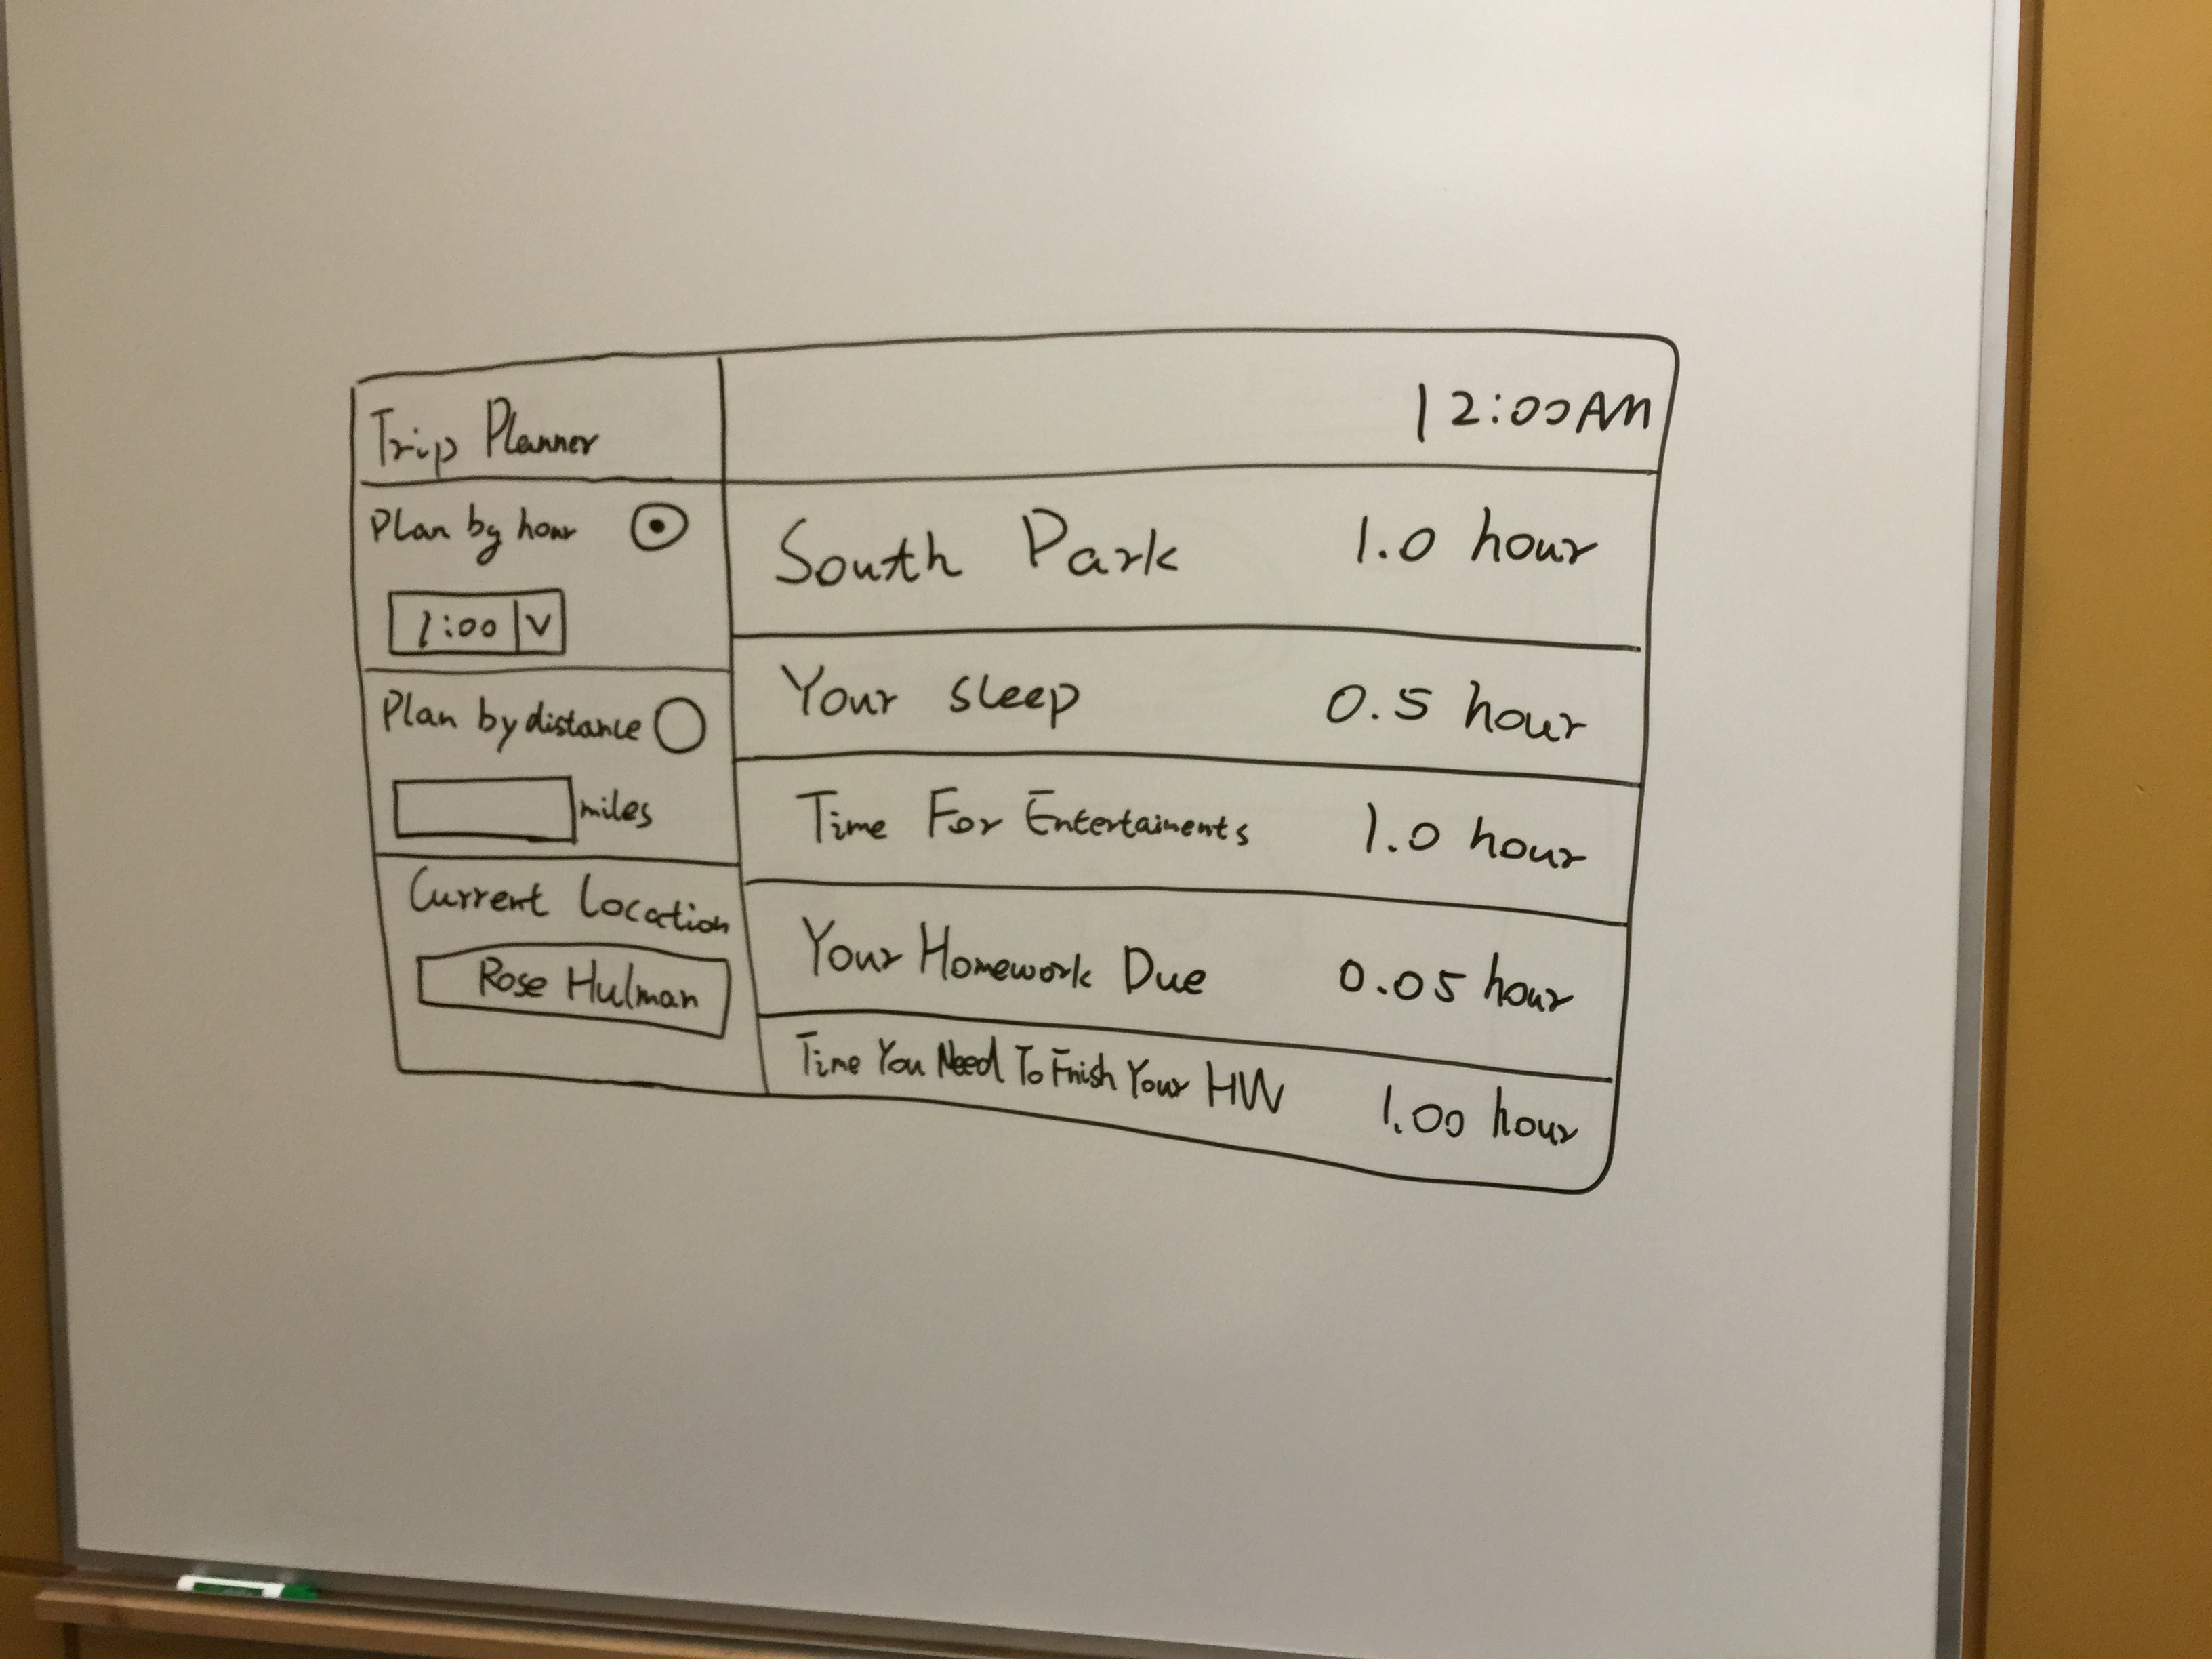 Trip Planner
12:00AM
Plan by hour
1:00 V
Plan by distance
miles
Current Location
Rose Hulman
South Park 1.0 hour
Your sleep 0.5 hour
Time For Entertaiments 1.0 hour
Your Homework Due 0.05 hour
Time You Need To Fnish Your HW 1.00 hour